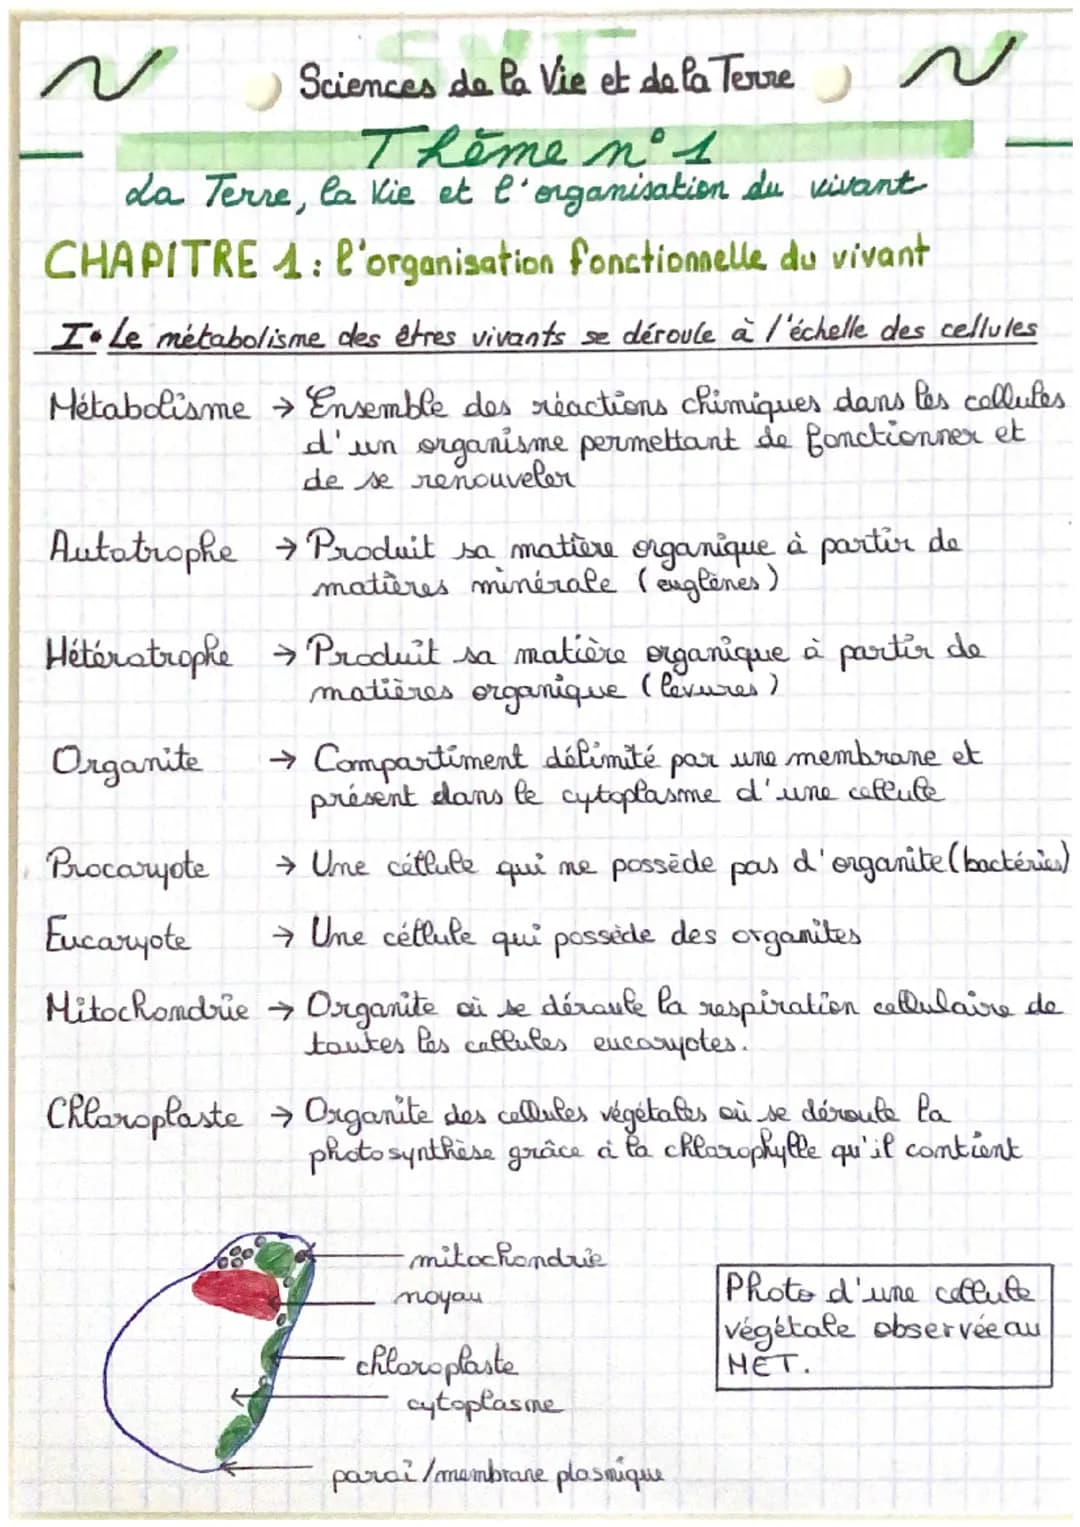 SVT
Sciences de la Vie et de la Terre
Thème n°1
La Terre, la Vie et l'organisation du vivant
CHAPITRE 1 : l'organisation fonctionnelle du vivant
I• Le métabolisme des êtres vivants se déroule à l'échelle des cellules
Métabolisme → Ensemble des réactions chimiques dans les cellules
d'un organisme permettant de fonctionner et
de se renouveler
Autotrophe → Produit sa matière organique à partir de
matières minérale (euglènes)
Hétérotrophe → Produit sa matière organique à partir de
matières organique (levures)
Organite → Compartiment délimité par une membrane et
présent dans le cytoplasme d'une cellule
Procaryote → Une céllule qui ne possède pas d'organite (bactéries)
Eucaryote → Une céllule qui possède des organites
Mitochondrie → Organite où se déroule la respiration cellulaire de
toutes les cellules eucaryotes.
Chloroplaste → Organite des cellules végétales où se déroule la
photosynthèse grâce à la chlorophylle qu'il contient
mitochondrie
noyau
Photo d'une cellule
végétale observée au
MET.
chloroplaste
cytoplasme
paroi/membrane plasmique